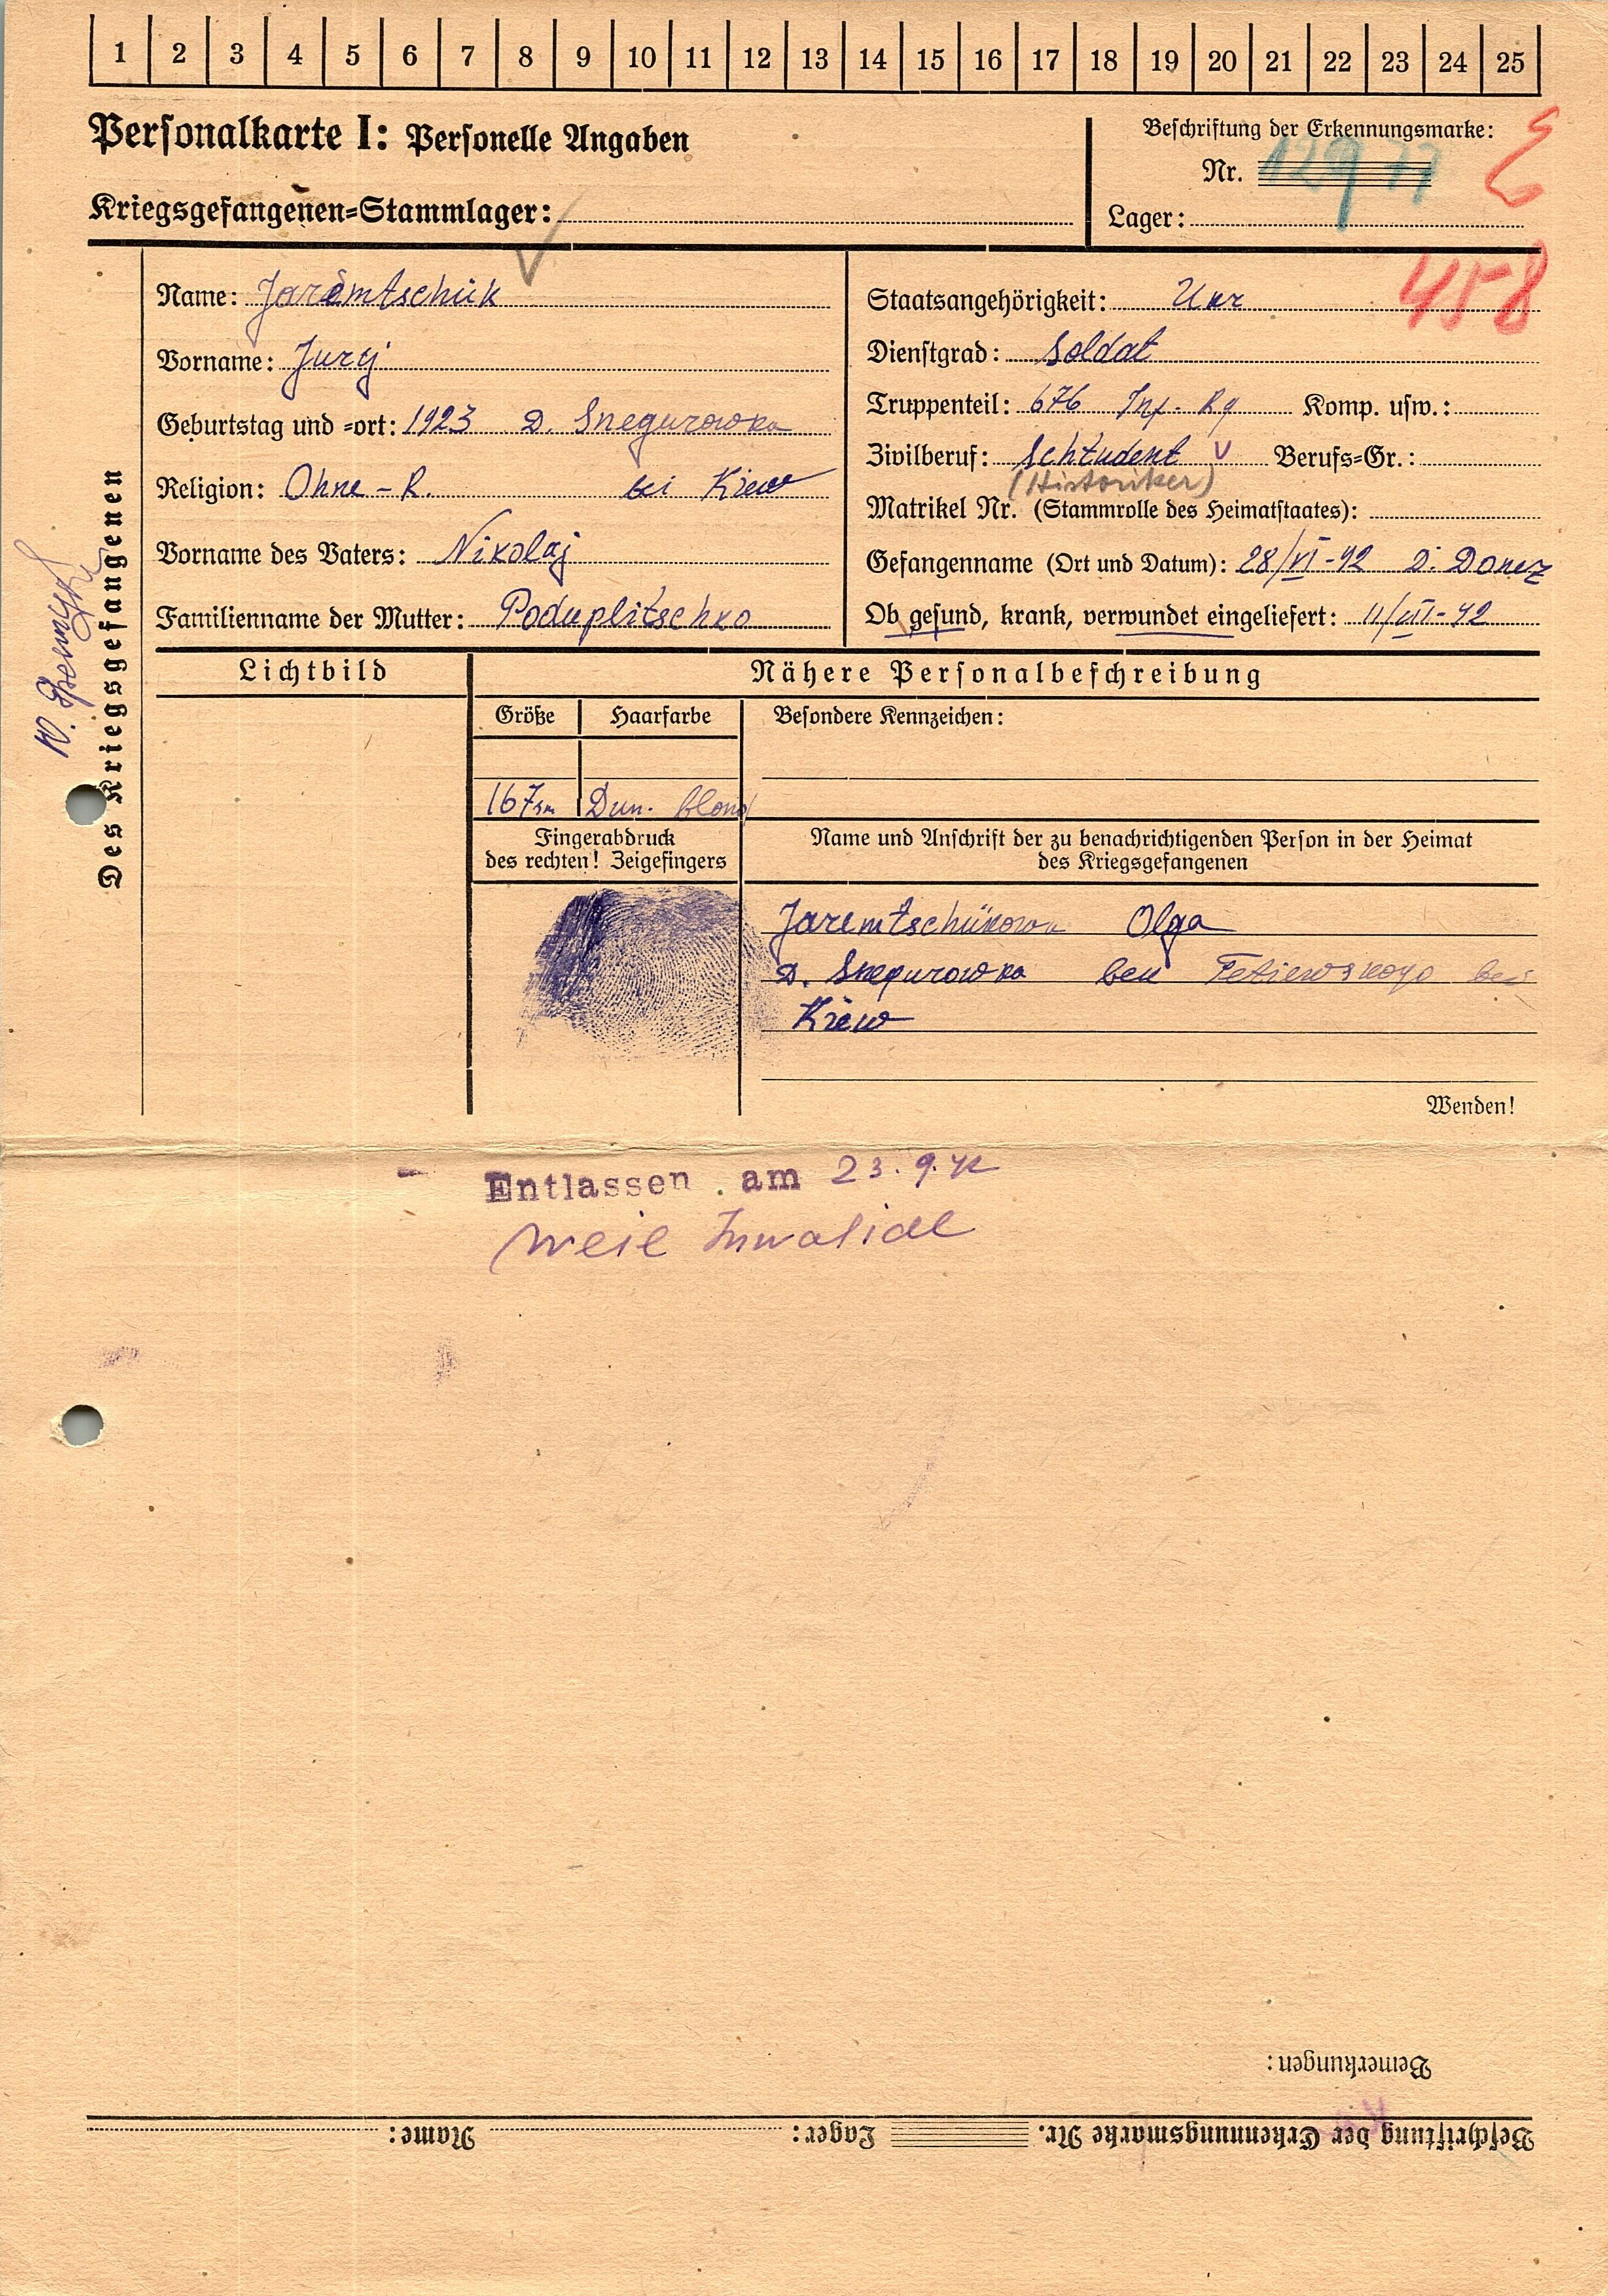 1 2 3 4 5 6 7 8 9 10 11 12 13 14 15 16 17 18 19 20 21 22 23 24 25
Personalkarte I: Personelle Angaben
Kriegsgefangenen=Stammlager:
Beschriftung der Erkennungsmarke:
Nr. 12977
Lager:
458
Des Kriegsgefangenen
Name: Jaremtschuk
Vorname: Jurij
Geburtstag und =ort: 1923 D. Snegurowka
Religion: Ohne - R. bei Kiew
Vorname des Vaters: Nikolaj
Familienname der Mutter: Poduplitschko
Staatsangehörigkeit: Ukr
Dienstgrad: Soldat
Truppenteil: 676 Inf. Rg Komp. usw.:
Zivilberuf: Schtudent Berufs=Gr.:
(Historiker)
Matrikel Nr. (Stammrolle des Heimatstaates):
Gefangenname (Ort und Datum): 28/VI-42 D. Donez
Ob gesund, krank, verwundet eingeliefert: 11/VII-42
Lichtbild
Nähere Personalbeschreibung
Größe Haarfarbe Besondere Kennzeichen:
167 Dun. blond
Fingerabdruck
des rechten! Zeigefingers
Name und Anschrift der zu benachrichtigenden Person in der Heimat
des Kriegsgefangenen
Jaremtschükowa Olga
D. Snegurowka Tetiewskogo bei
Kiew
Wenden!
Entlassen am 23.9.42
weil Invalide
Bemerkungen:
Beschriftung der Erkennungsmarke Nr. Lager: Name: